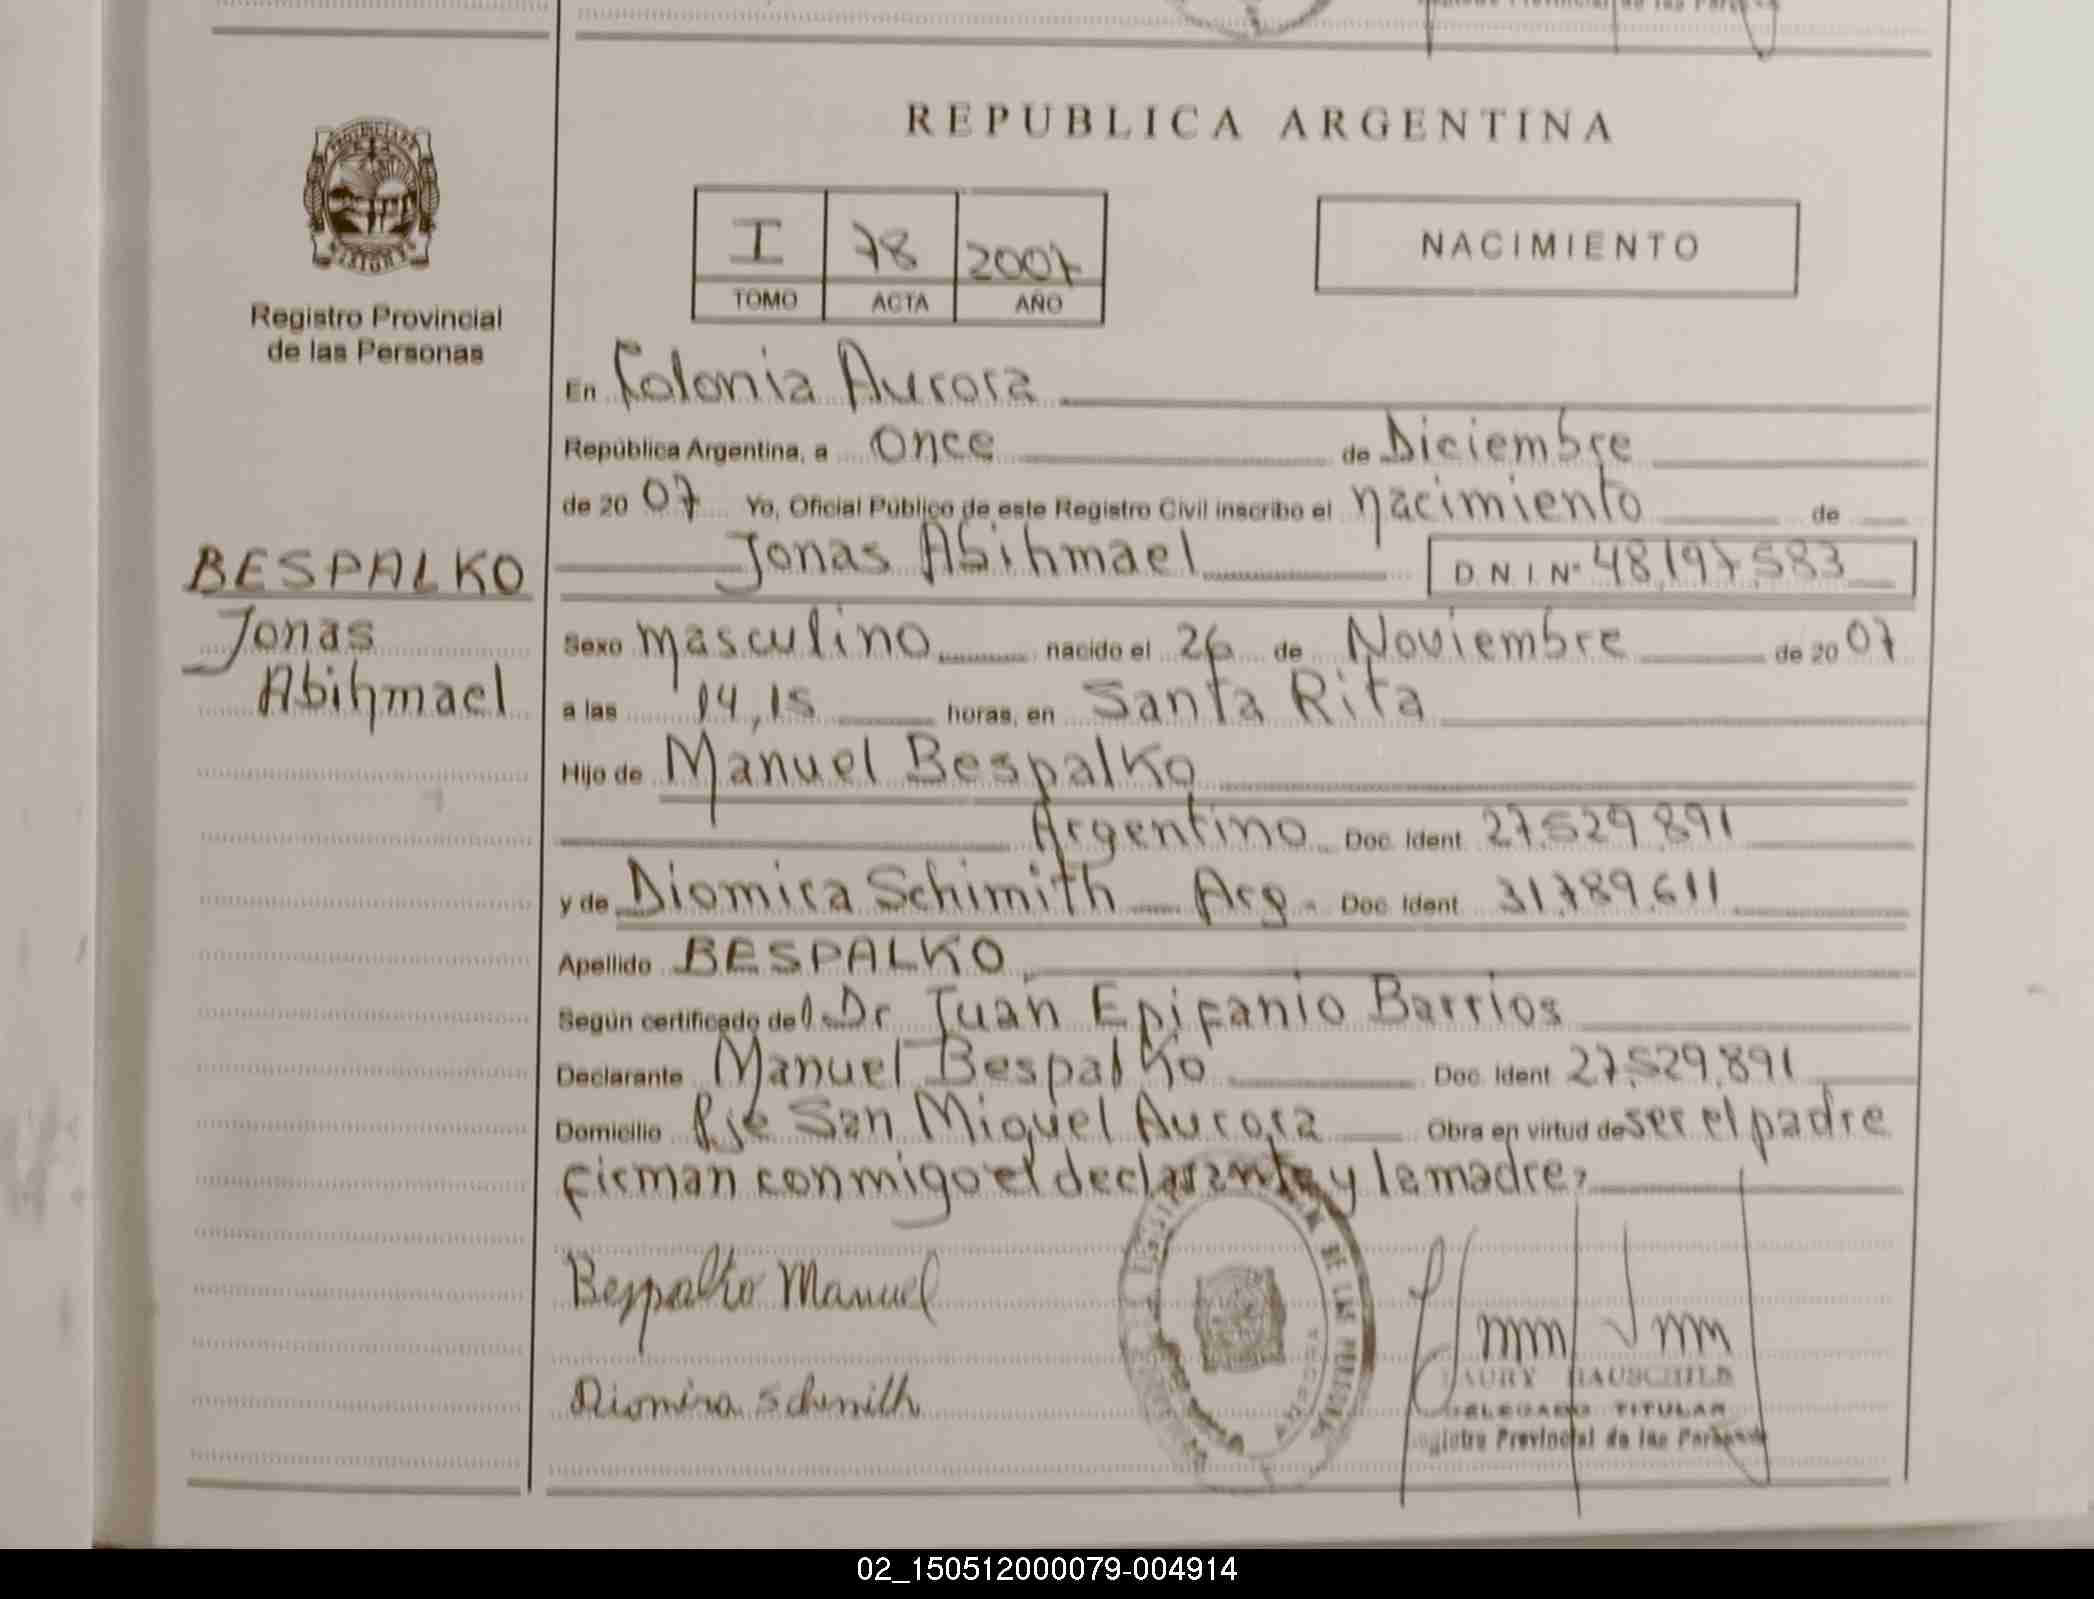 REPUBLICA ARGENTINA
I 78 2007
TOMO ACTA AÑO
NACIMIENTO
Registro Provincial
de las Personas
BESPALKO
Jonas
Abihmael
En Colonia Aurora
República Argentina, a once de Diciembre
de 20 07 Yo, Oficial Público de este Registro Civil inscribo el nacimiento de
Jonas Abihmael D N I Nº 48.197.583
Sexo masculino nacido el 26 de Noviembre de 20 07
a las 14,15 horas, en Santa Rita
Hijo de Manuel Bespalko
Argentino Doc. Ident. 27.529.891
y de Diomira Schimith Arg. Doc. Ident. 31.789.611
Apellido BESPALKO
Según certificado del Dr Juan Epifanio Barrios
Declarante Manuel Bespalko Doc. Ident. 27.529.891
Domicilio Pje San Miguel Aurora Obra en virtud de ser el padre
firman conmigo el declarante y la madre,
Bespalko Manuel
Diomira Schmith
DE LAS PERSONAS
HAUSCHILD
DELEGADO TITULAR
Registro Provincial de las Personas
02_150512000079-004914